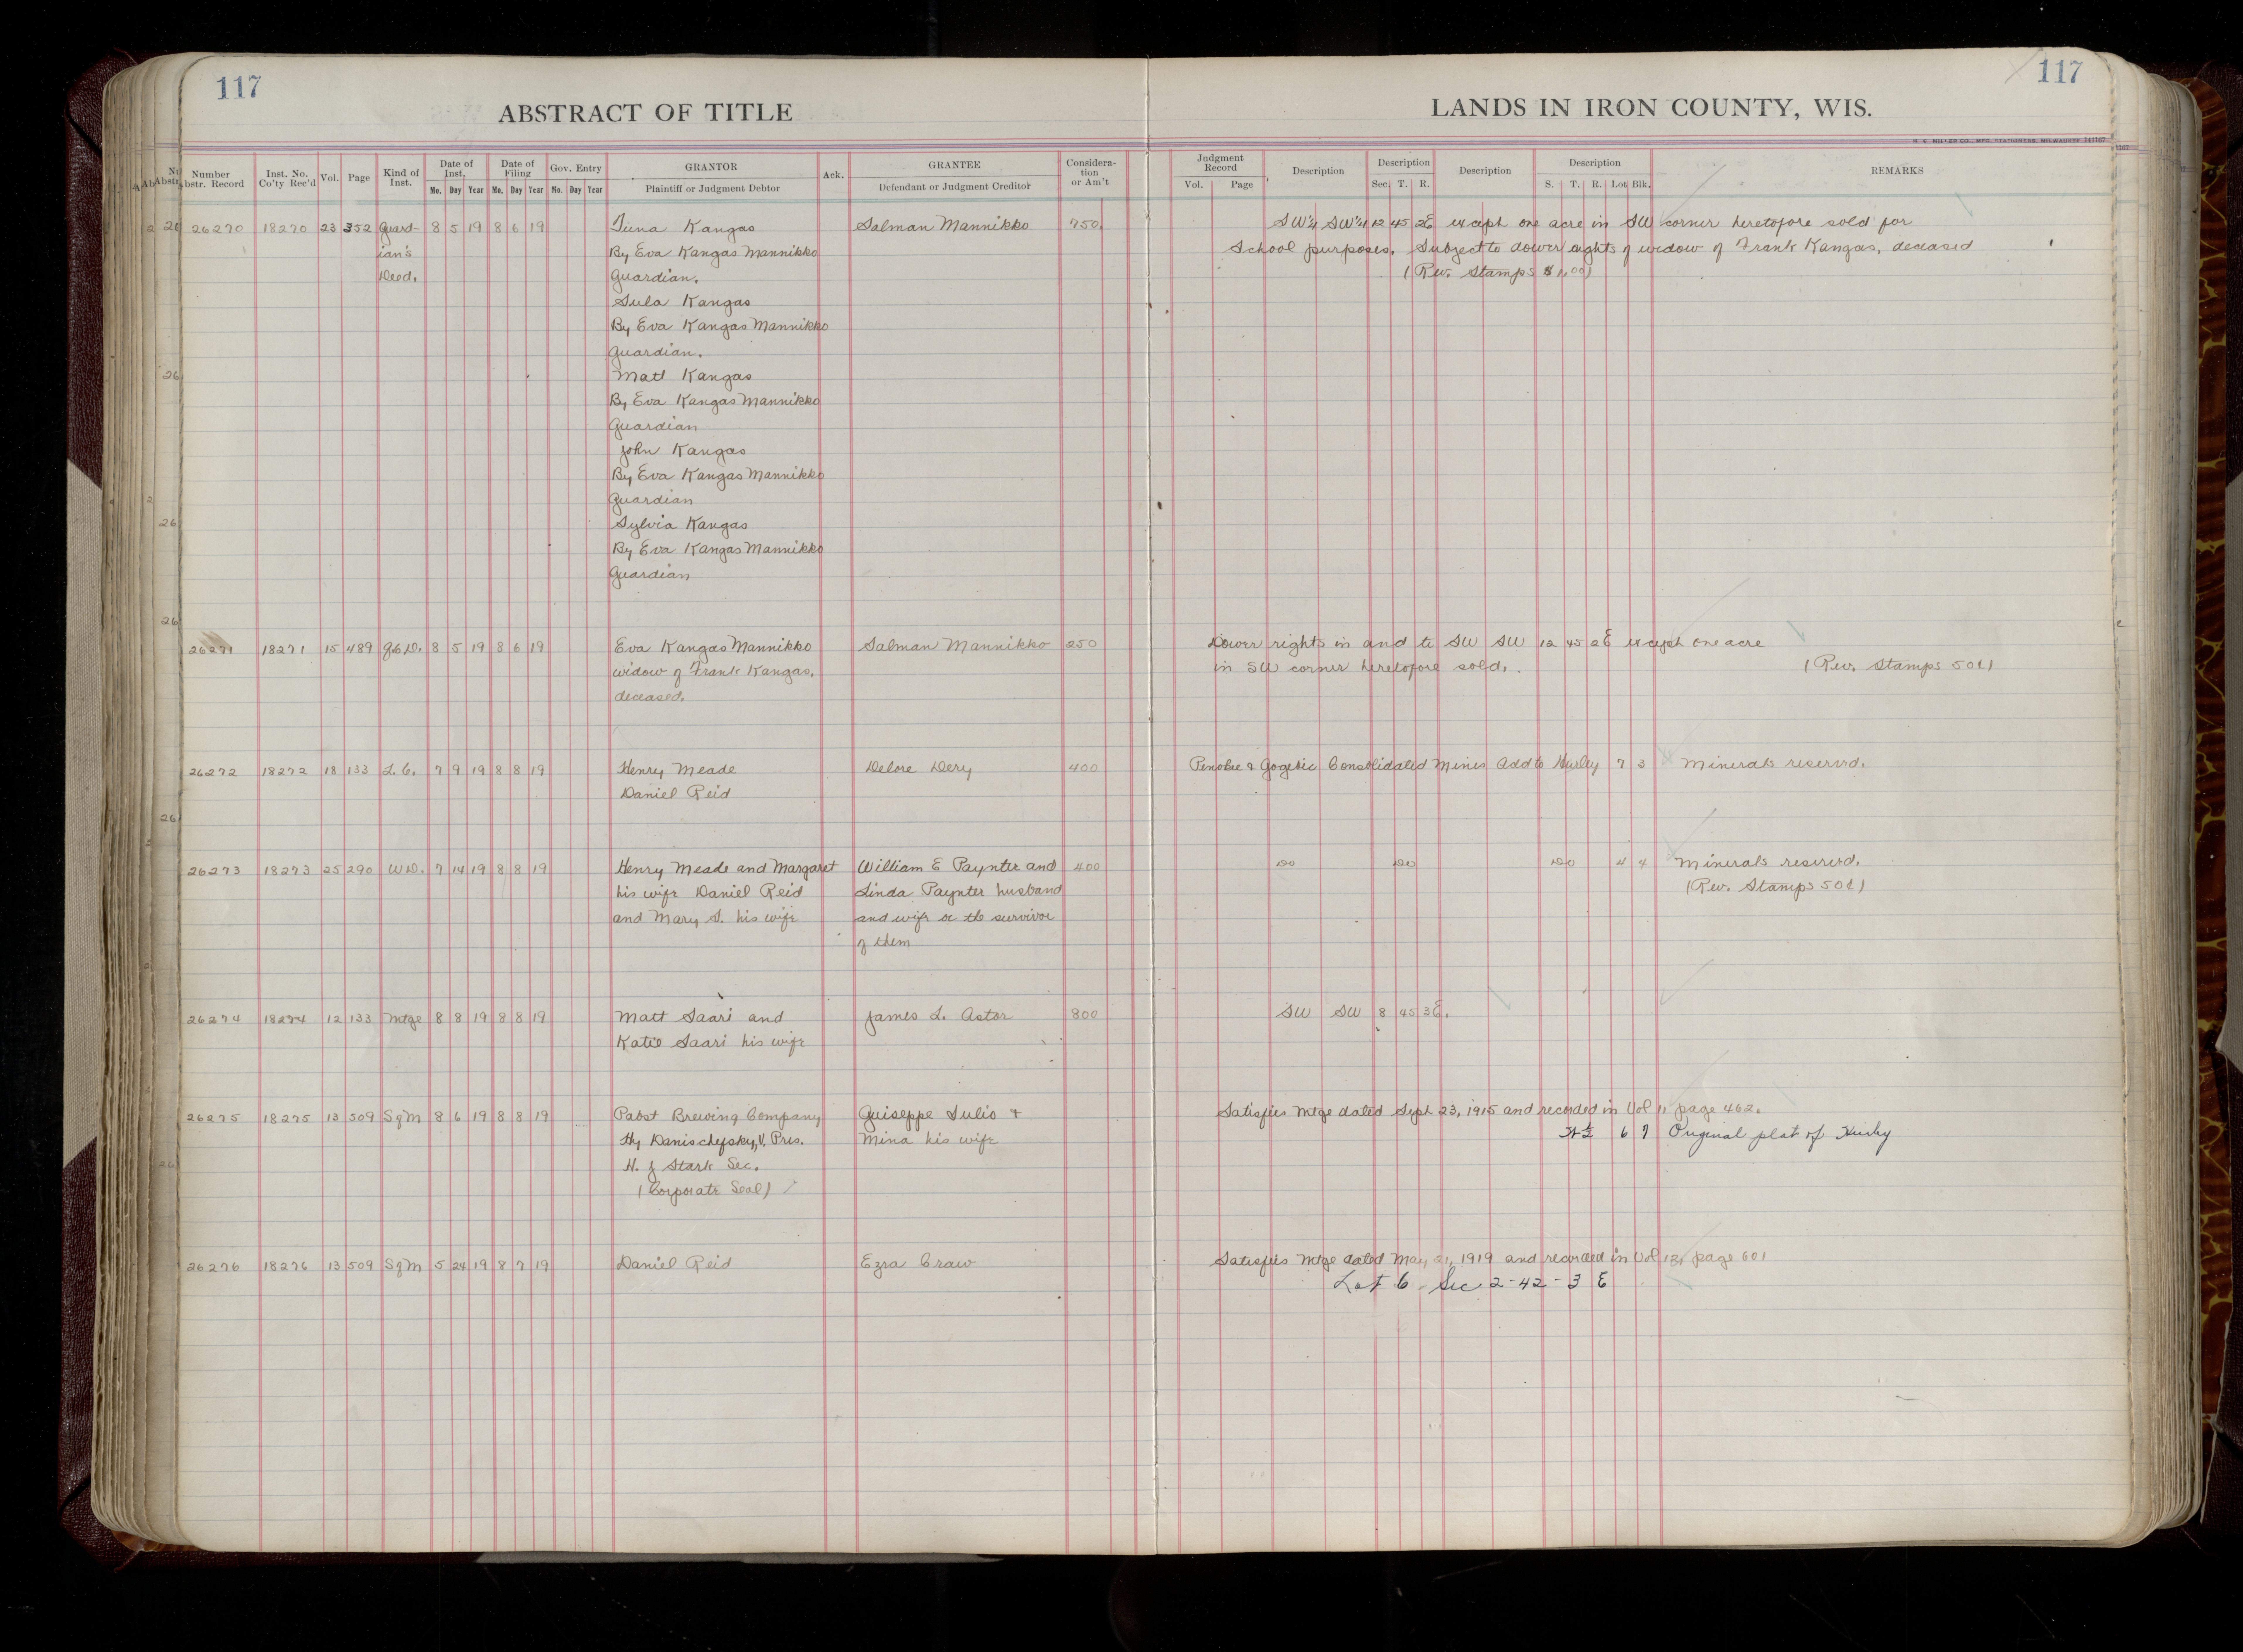 117
ABSTRACT OF TITLE
117
LANDS IN IRON COUNTY, WIS.
H. C. MILLER CO., MFG. STATIONERS, MILWAUKEE 141167
Number Abstr. Record Inst. No. Co'ty Rec'd Vol. Page Kind of Inst. Date of Inst. Mo. Day Year Date of Filing Mo. Day Year Gov. Entry Mo. Day Year GRANTOR Plaintiff or Judgment Debtor Ack. GRANTEE Defendant or Judgment Creditor Considera-tion or Am't
Judgment Record Vol. Page Description Description Sec. T. R. Description Description S. T. R. Lot Blk. REMARKS
26270 18270 23 352 Guard- 8 5 19 8 6 19 Kangas Salman Mannikko 750 SW¼ SW¼ 12 45 2E except one acre in SW corner heretofore sold for
ian's By Eva Kangas Mannikko School purposes. Subject to dower rights of widow of Frank Kangas, deceased
Deed. Guardian. (Rev. Stamps $1.00)
Kangas
By Eva Kangas Mannikko
Guardian.
Matt Kangas
By Eva Kangas Mannikko
Guardian
John Kangas
By Eva Kangas Mannikko
Guardian
Sylvia Kangas
By Eva Kangas Mannikko
Guardian
26271 18271 15 489 Q.C.D. 8 5 19 8 6 19 Eva Kangas Mannikko Salman Mannikko 250 Dower rights in and to SW SW 12 45 2E except one acre
widow of Frank Kangas, in SW corner heretofore sold. (Rev. Stamps 50¢)
deceased.
26272 18272 18 133 L.C. 7 9 19 8 8 19 Henry Meade Delore Dery 400 Penokee & Gogebic Consolidated Mines Add to Hurley 7 3 Minerals reserved.
Daniel Reid
26273 18273 25 290 W.D. 7 14 19 8 8 19 Henry Meade and Margaret William E Paynter and 400 Do Do Do 4 4 Minerals reserved.
his wife Daniel Reid Linda Paynter husband (Rev. Stamps 50¢)
and Mary S. his wife and wife or the survivor
of them
26274 18274 12 133 Mtge 8 8 19 8 8 19 Matt Saari and James L. Astor 800 SW SW 8 45 3E.
Katie Saari his wife
26275 18275 13 509 S of M 8 6 19 8 8 19 Pabst Brewing Company Guiseppe Sulis + Satisfies Mtge dated Sept 23, 1915 and recorded in Vol 11 page 462.
Hy Danischefsky, V. Pres. Mina his wife N½ 6 7 Original plat of Hurley
H. J Stark Sec.
(Corporate Seal)
26276 18276 13 509 S of M 5 24 19 8 7 19 Daniel Reid Ezra Craw Satisfies Mtge dated May 21, 1919 and recorded in Vol 13, page 601
Lot 6 Sec 2-42-3 E